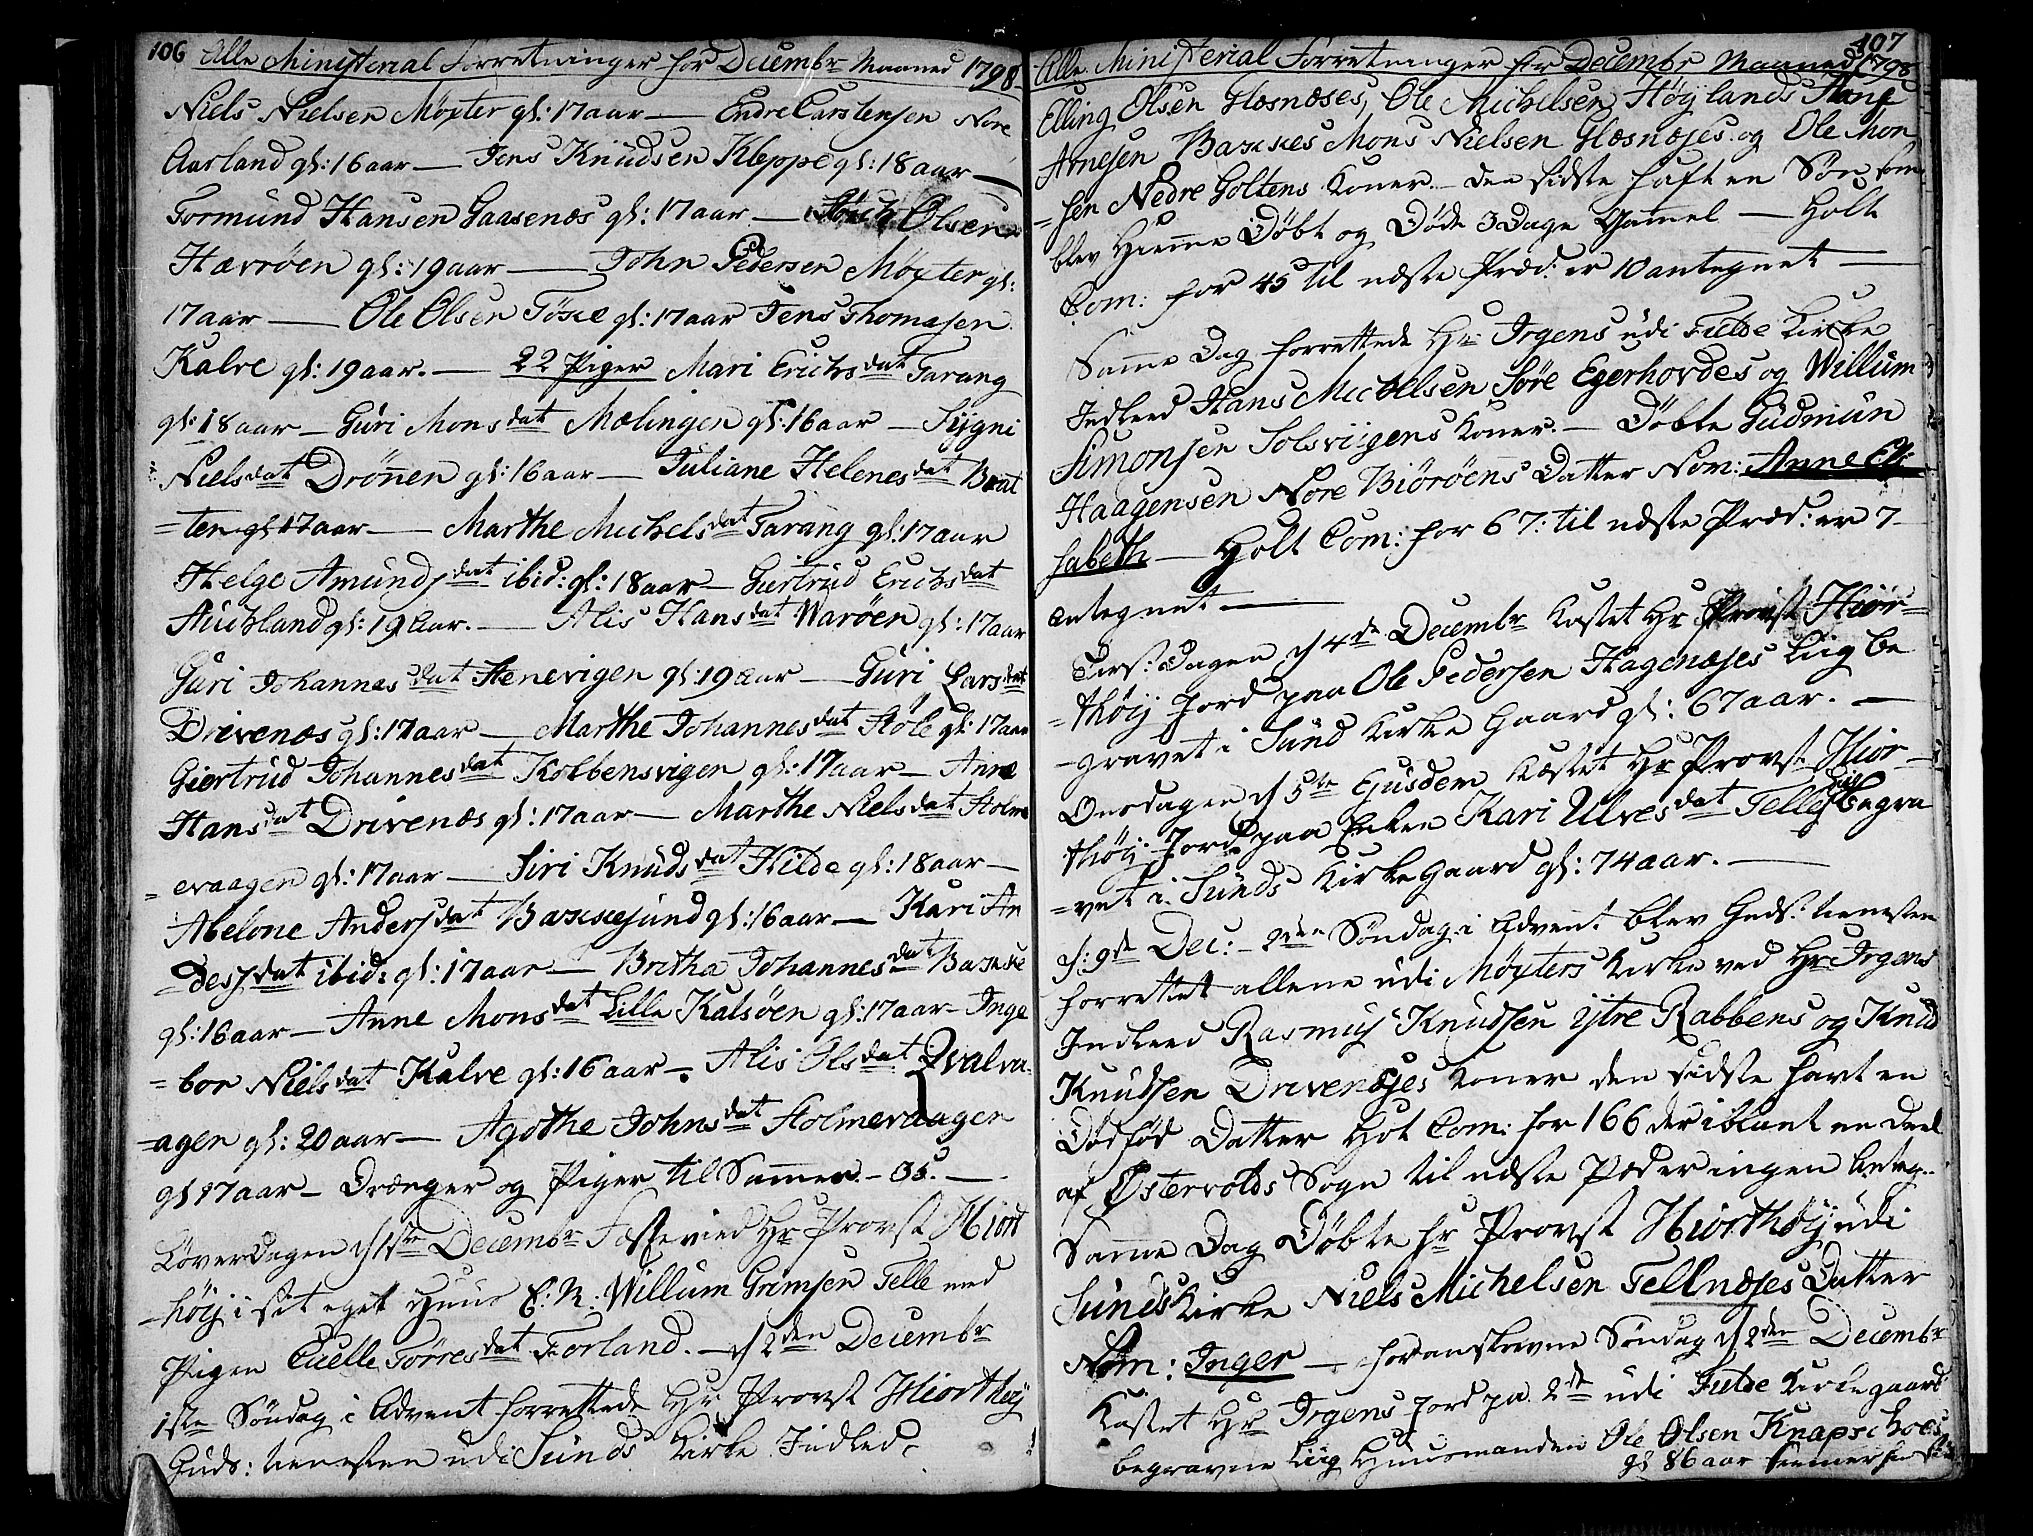 106 Alle Ministerial Forretninger for Decembr Maaned 1798
Niels Nielsen Møxter gl: 17 aar — Endre Carstensen Nore
Aarland gl: 16 aar — Jens Knudsen Kleppe gl: 18 aar —
Tormund Hansen Gaasenæs gl: 17 aar — Olsen
Hævrøen gl: 19 aar — John Pedersen Møxter gl:
17 aar — Ole Olsen Tøsse gl: 17 aar Jens Thomasen
Kalve gl: 19 aar. — 22 Piger Mari Erichsdat Tarang
gl: 18 aar — Guri Monsdat Mælingen gl: 16 aar — Sygni
Nielsdat Drønen gl: 16 aar — Juliane Helenesdat Brat
=ten gl 17 aar — Marthe Michelsdat Tarang gl: 17 aar
Helge Amundsdat ibid: gl: 18 aar — Giertrud Erichsdat
Auchland gl: 19 aar. — Alis Hansdat Warøen gl: 17 aar
Guri Johannesdat Stenevigen gl: 19 aar — Guri Larsdat
Drivenæs gl: 17 aar — Marthe Johannesdat Støle gl: 17 aar
Giertrud Johannesdat Kolbensvigen gl: 17 aar — Anne
Hansdat Drivenæs gl: 17 aar — Marthe Nielsdat Stolm
=evaagen gl: 17 aar — Siri Knudsdat Hilde gl: 18 aar —
Abelone Andersdat Backesund gl: 16 aar — Kari An
=desdat ibid: gl: 17 aar — Britha Johannesdat Backe
gl: 16 aar — Anne Monsdat Lille Kalsøen gl: 17 aar — Inge
=bor Nielsdat Kalve gl: 16 aar — Alis Olsdat Qvalva
-agen gl: 20 aar — Agothe Johnsdat Stolmevaagen
gl 17 aar — Drænger og Piger til Sammen — 35. —
Løverdagen d 1ste Decembr Fæstevied Hr Provst Hiort
-høy i sit eget Huus E: K: Willum Grimsen Telle med
Pigen Cuelle Tørresdat Forland. — d 2den Decembr
1ste Søndag i Advent forrettede Hr Provst Hiorthøy
Guds: tienesten udi Sunds Kirke Indled.
107
Alle Ministerial Forretninger for Decembr Maaned 1798
Elling Olsen Glesnæses, Ole Michelsen Høylands
Arnesen Backes Mons Nielsen Glesnæses og Ole Mon
=sen Nedre Goltens Koner — den sidste haft en Søn som
blev Hiemme Døbt og Døde 3 Dage Gamel — Holt
Com: for 45 til næste Præd: er 10 antegnet —
Samme Dag forrettede Hr Irgens udi Fielde Kirke
Indleed Hans Michelsen Søre Egerhovdes og Willum
Simonsen Solsviigens Koner. — Døbte Gudmun
Haagensen Nore Biørøens Datter Nom: Anne Eli
sabeth — Holt Com: for 67: til næste Præd: er 7
antegnet —
Tirs: Dagen d 4de Decembr Kastet Hr Provst Hior=
=thøy Jord paa Ole Pedersen Hagenæses Liig be
-gravet i Sund Kirke Gaard gl: 67 aar. —
Onsdagen d 5te Ejusdem Kastet Hr Provst Hior-
thøy Jord paa Enken Kari Ulvesdat Telles Liig begra
=vet i Sunds Kirke Gaard gl: 74 aar. —
d: 9de Dec: — 2den Søndag i Advent blev Guds: tienesten
forrettet allene udi Møxters Kirke ved Hr Irgens
Indleed Rasmus Knudsen ystre Rabbens og Knud
Knudsen Drivenæses Koner den sidste havt en
Dødfød Datter Hot Com: for 166 der iblant en deel
af Østervolds Sogn til næste Præder ingen anteg.
Samme Dag Døbte Hr Provst Hiorthøy udi
Sunds Kirke Niels Michelsen Tellnæses Datter
Nom: Inger — foranskrevne Søndag d 2den Decembr
Kastet Hr Irgens Jord pa 2de udi Fielde Kirkegaard
begravne Liig Huusmanden Ole Olsen Knapschoes
gl 86 aar